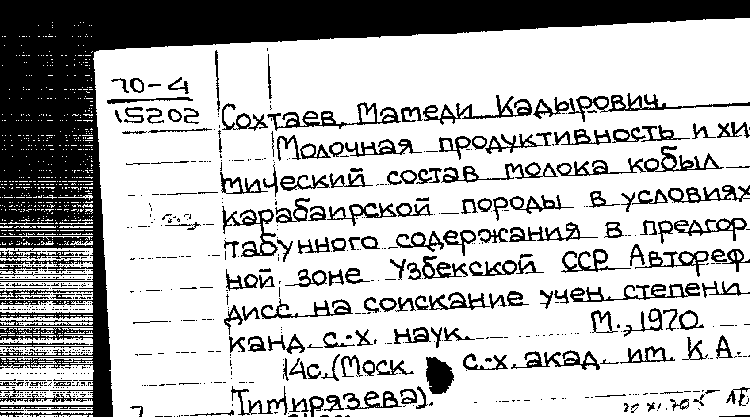 70-4
15202
Сохтаев, Мамеди Кадырович.
Молочная продуктивность и хи-
мический состав молока кобыл
карабаирской породы в условиях
табунного содержания в предгор
ной зоне Узбекской ССР. Автореф.
дисс. на соискание учен. степени
канд. с.-х. наук. М., 1970.
14с. (Моск. с.-х. акад. им. К.А.
Тимирязева).